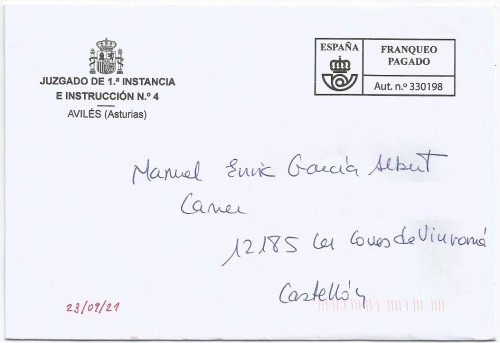 JUZGADO DE 1.ª INSTANCIA
E INSTRUCCIÓN N.º 4
AVILÉS (Asturias)
ESPAÑA
FRANQUEO
PAGADO
Aut. n.º 330198
Manuel Enric García Albert
12185 Les Coves de Vinromá
Castellón
23/09/21